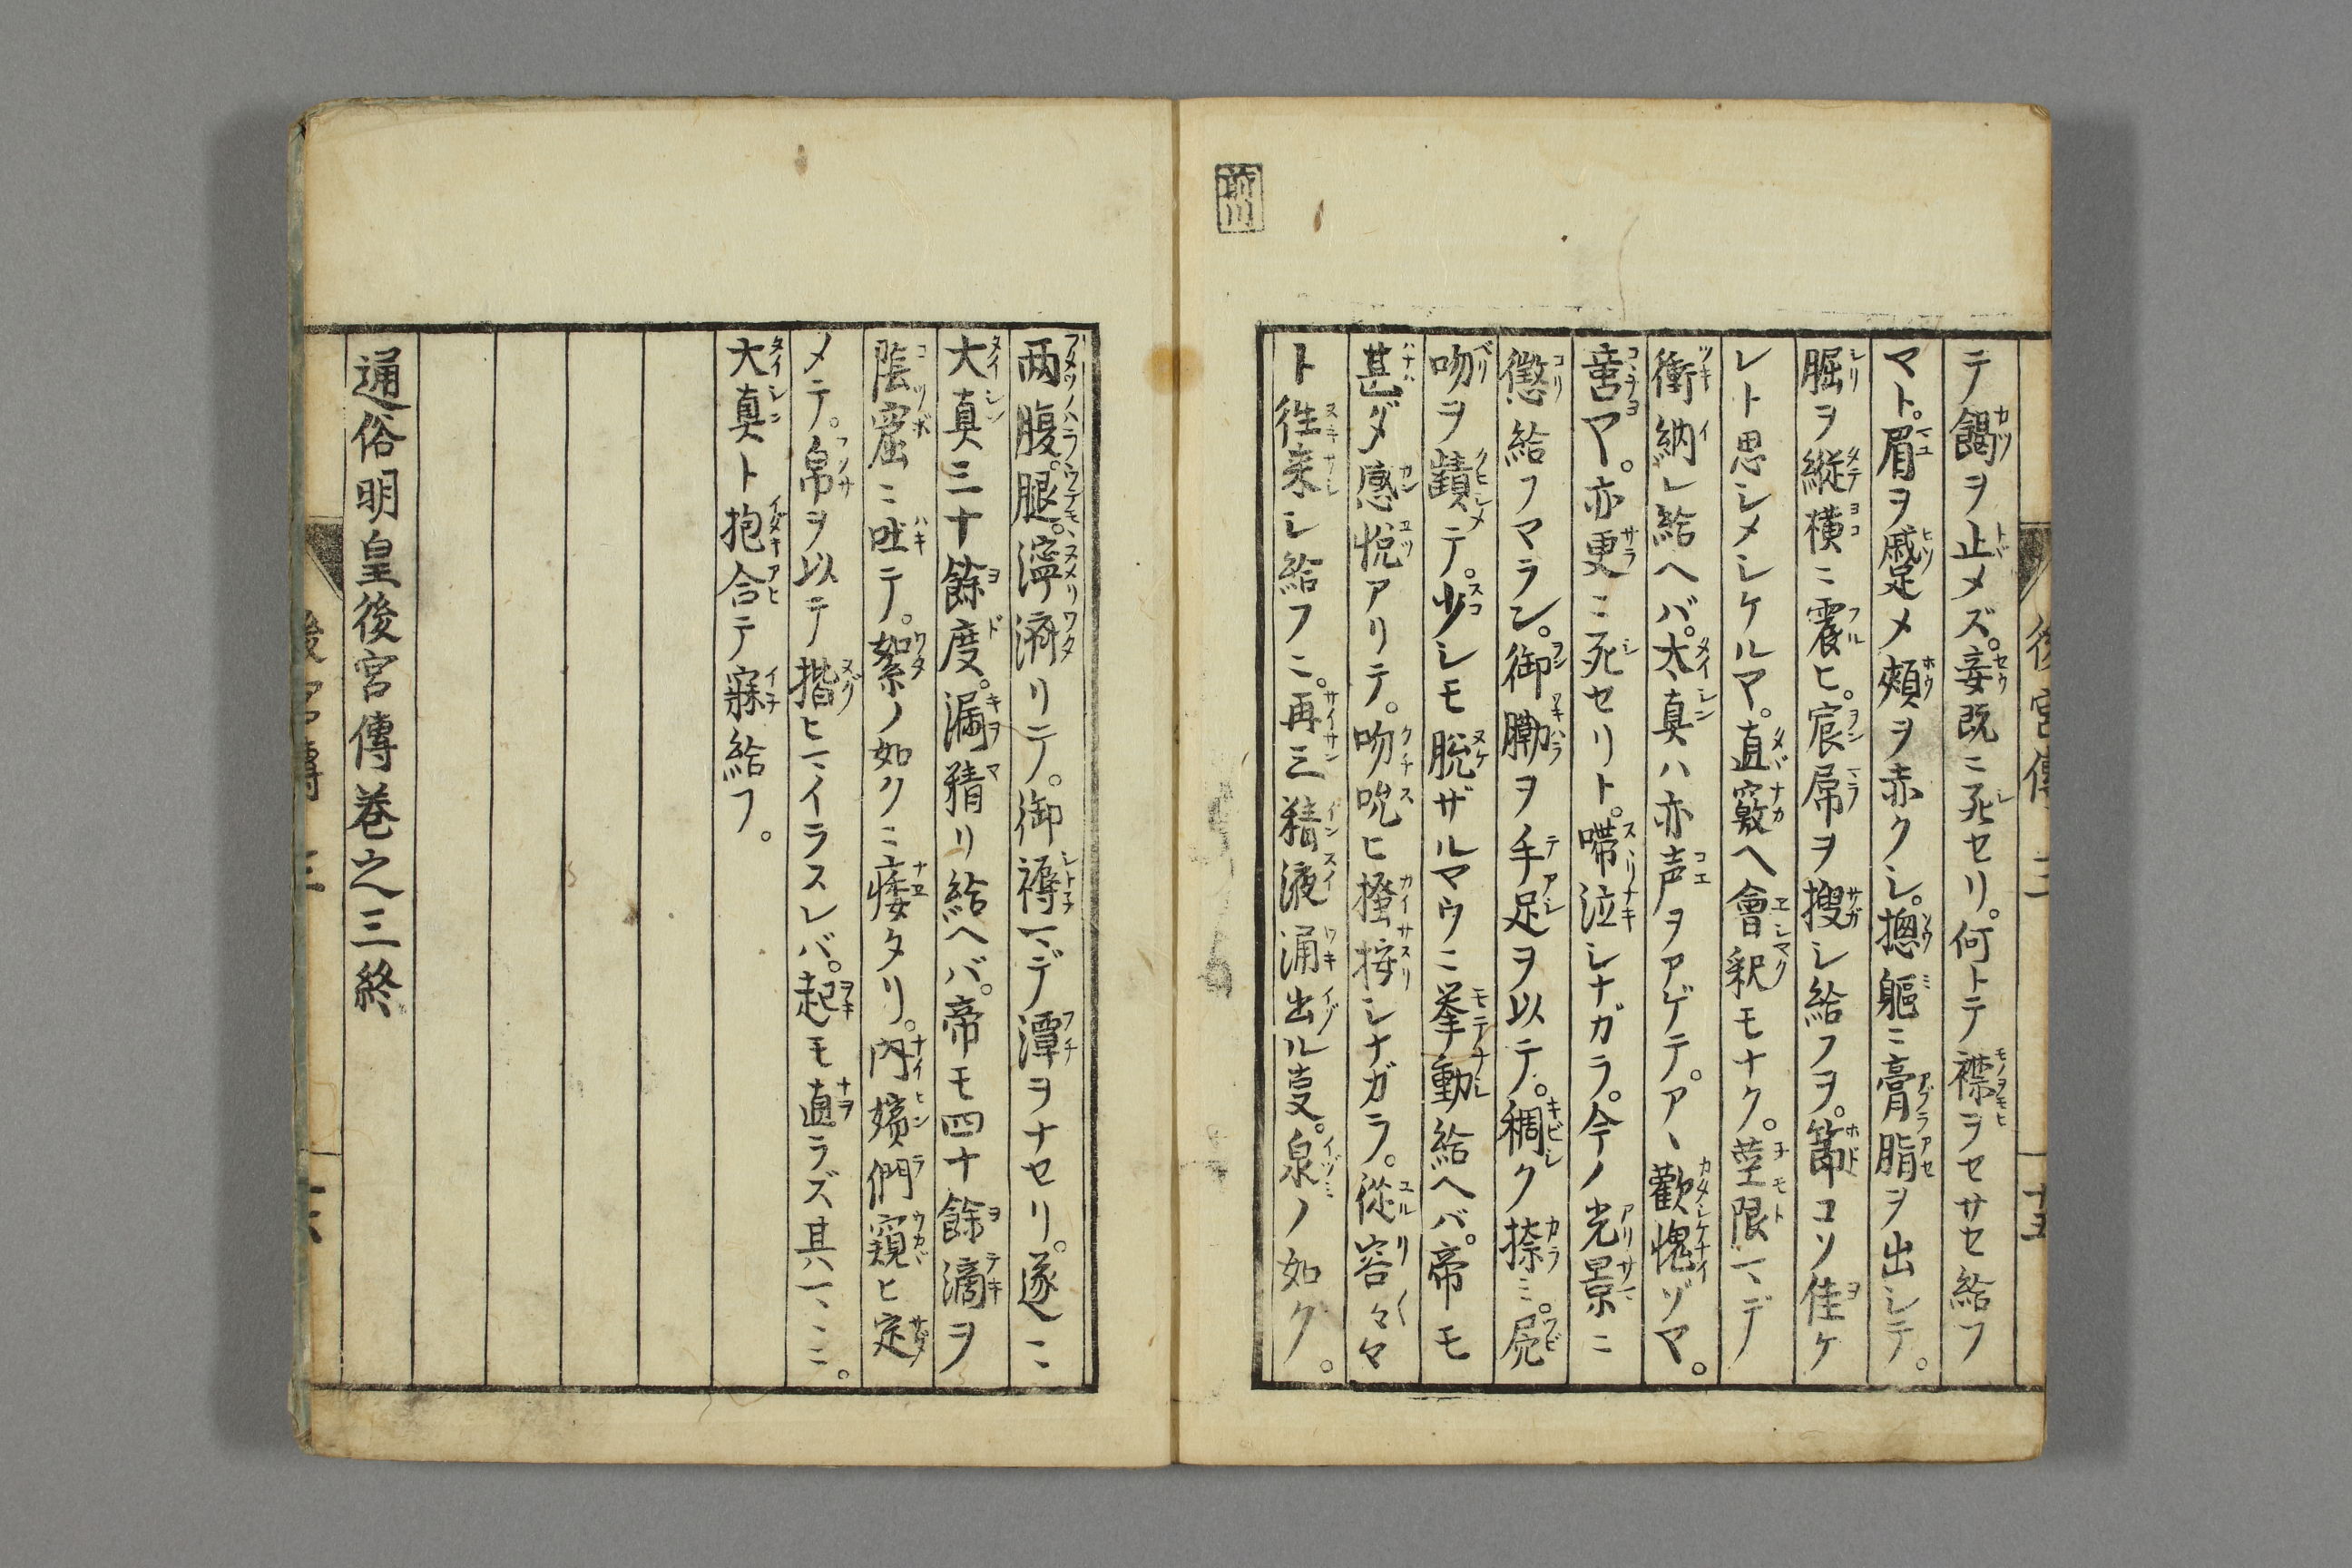 後宮傳 三 十五
テ餲ヲ止メズ。妾既ニ死セリ。何トテ襟ヲセサセ給フ
マト。眉ヲ蹙メ頬ヲ赤クシ。摠軀ニ膏脂ヲ出シテ。
䐃ヲ縦横ニ震ヒ。宸屌ヲ搜シ給フヲ。節コソ佳ケ
レト思シメシケルマ。直竅ヘ會釈モナク。莖限マデ
衝納レ給ヘバ。太真ハ亦声ヲアゲテ。アヽ歡愧ゾマ。
マ。亦更ニ死セリト。啼泣シナガラ。今ノ光景ニ
懲給フマラン。御肋ヲ手足ヲ以テ。稠ク捺ミ。
吻ヲ テ。少シモ脱ザルマウニ挙動給ヘバ。帝モ
甚ダ感悦アリテ。吻吮ヒ搔按シナガラ。從容々々
ト徃来シ給フニ。再三精液涌出ル㕝。泉ノ如ク。
両腹。腿。濘濟リテ。御褥マデ潭ヲナセリ。遂ニ
大真三十餘度。漏精リ給ヘバ。帝モ四十餘滴ヲ
陰窟ニ吐テ。絮ノ如クニ痿タリ。内嬪們窺ヒ定
メテ。帛ヲ以テ揩ヒマイラスレバ。起モ直ラズ其マヽニ。
大真ト抱合テ寐給フ。
通俗明皇後宮傳巻之三終
後宮傳 三